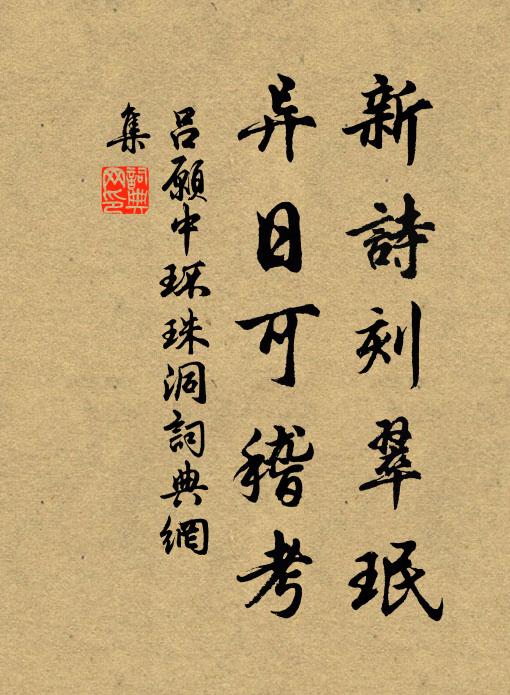 新詩刻翠珉
异日可稽考
吕願中环珠洞詞典網
集
詞典网印